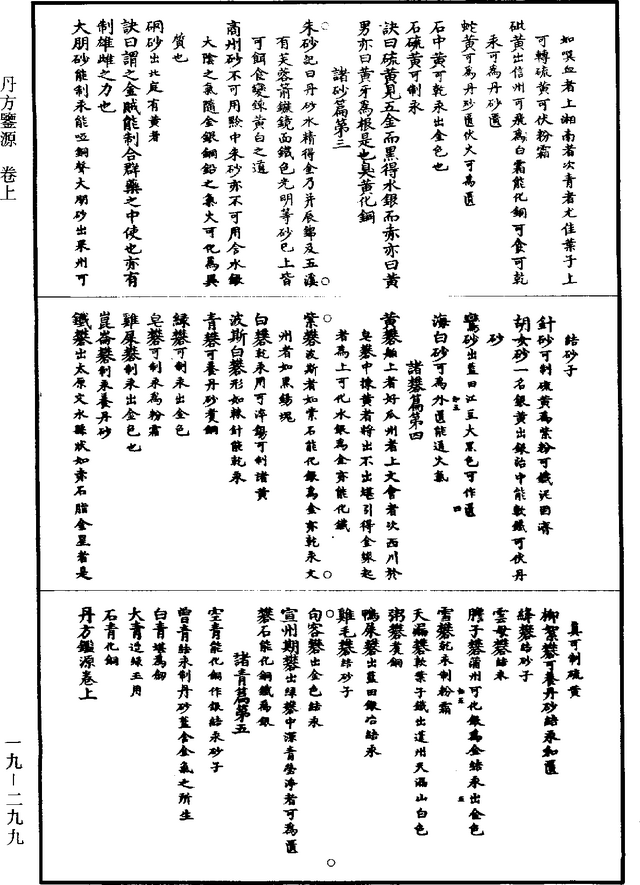 丹方鑒源 卷上
如嘿血者上湘南者次青者尤佳葉子上
可轉硫黃可伏粉霜
砒黃出信州可飛為白霜能化銅可食可乾
汞可為丹砂匱
蛇黃可為丹砂匱伏火可為匱
石中黃可乾汞出金色也
石硫黃可制汞
訣曰硫黃見五金而黑得水銀而赤亦曰黃
男亦曰黃牙為根是也臭黃化銅
諸砂篇第三
朱砂記曰丹砂水精得金乃并辰錦及五溪
有芙蓉箭鏃鏡面鐵色光明等砂已上皆
可餌食變鍊黃白之道
商州砂不可用黔中朱砂亦不可用合水銀
大陰之氣隨金銀銅鉛之氣火可化為異
質也
硇砂出北庭有黃者
訣曰謂之金賊能制合群藥之中使也亦有
制雄雌之力也
大朋砂能制汞能啞銅聲大朋砂出果州可
結砂子
針砂可制硫黃為紫粉可鐵泥固濟
胡女砂一名銀黃出銀冶中能軟鐵可伏丹
砂
鷰砂出藍田江豆大黑色可作匱
海白砂可為外匱能通火氣
諸礬篇第四
黃礬舶上者好瓜州者上文會者次西川於
皂礬中揀黃者將出不出堪引得金線起
者為上可化水銀為金亦能化鐵
紫礬波斯者如紫石能化銀為金亦乾汞文
州者如黑錫塊
白礬乾汞用可淬錫可制諸黃
波斯白礬形如棘針能乾汞
青礬可養丹砂賁銅
綠礬可制汞出金色
皂礬可制汞為粉霜
雞屎礬制汞出金色也
崑崙礬制汞養丹砂
鐵礬出太原文水縣狀如赤石脂金星者是
真可制硫黃
柳絮礬可養丹砂結汞和匱
絳礬結砂子
雲母礬結汞
膟子礬蒲州可化銀為金結汞出金色
雪礬乾汞制粉霜
天漏礬軟葉子鐵出蓬州天漏山白色
粥礬賁銅
鴨屎礬出藍田銀冶結汞
雞毛礬結砂子
向客礬出金色結汞
宣州期礬出綠礬中深青瑩淨者可為匱
礬石能化銅鐵為銀
諸青篇第五
空青能化銅作銀結汞砂子
曾青結汞制丹砂蓋含金氣之所生
白青堪為匱
大青邊綠玉用
石青化銅
丹方鑑源卷上
一九－二九九